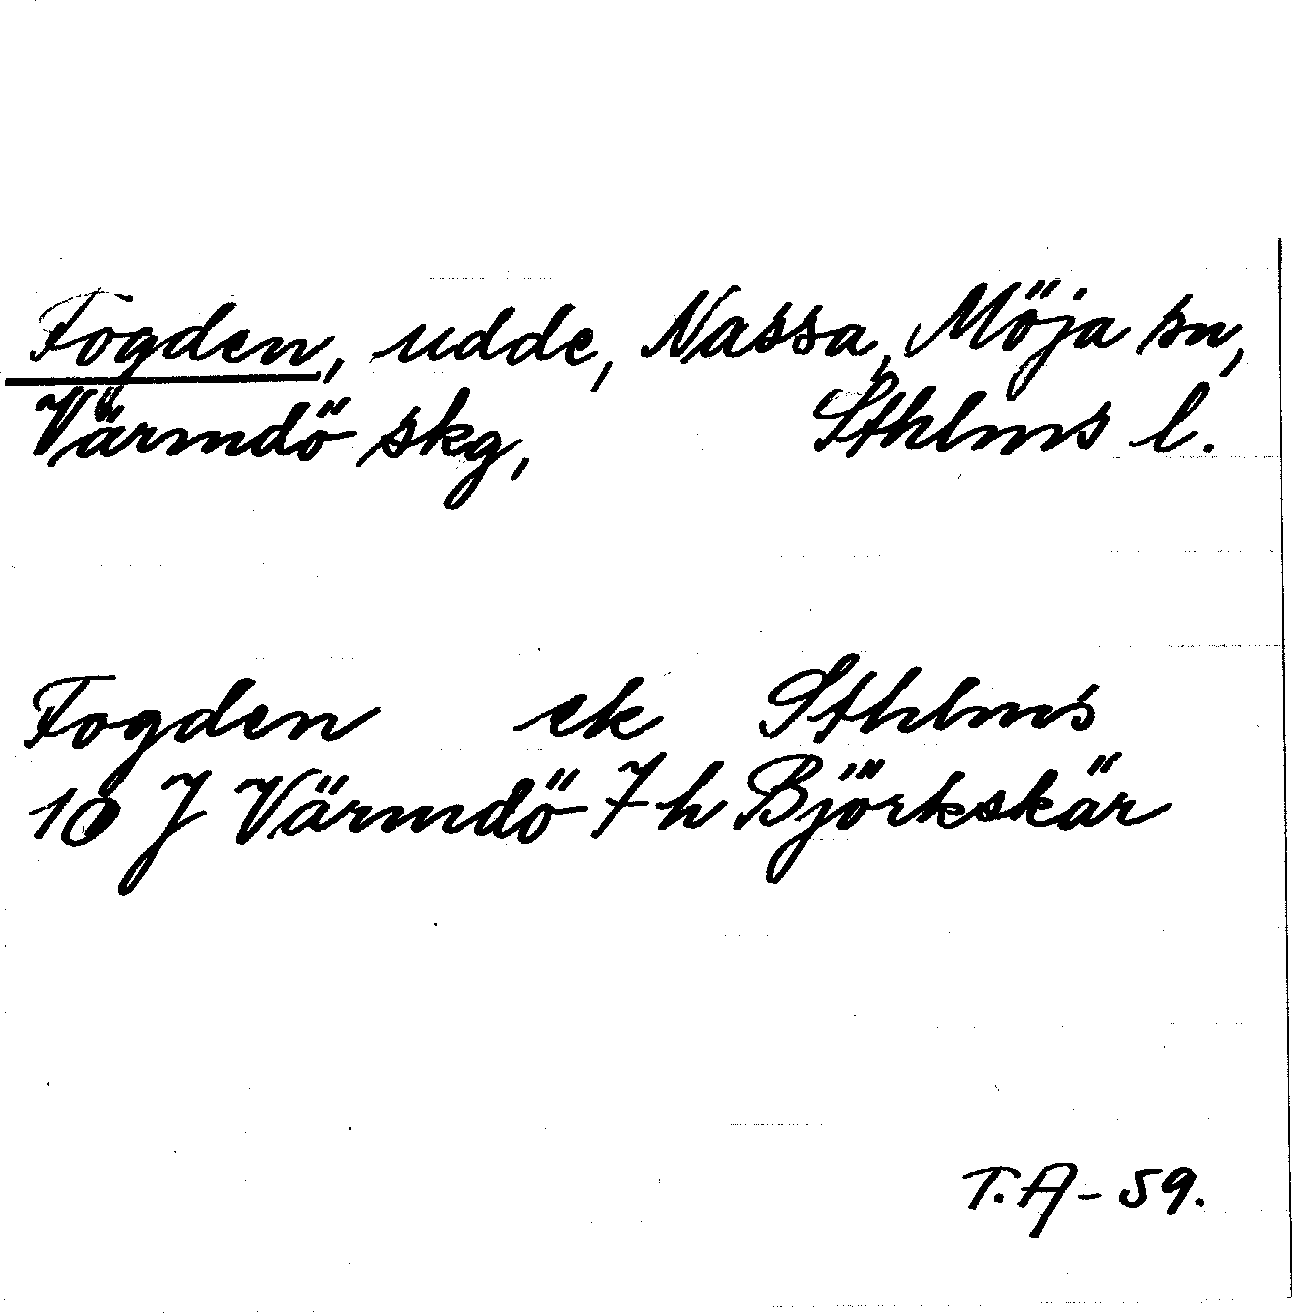 Fogden, udde, Nassa, Möja sn,
Värmdö skg, Sthlms l.
Fogden ek Sthlms
10 J Värmdö 7 h Björkskär
T.A - 59.